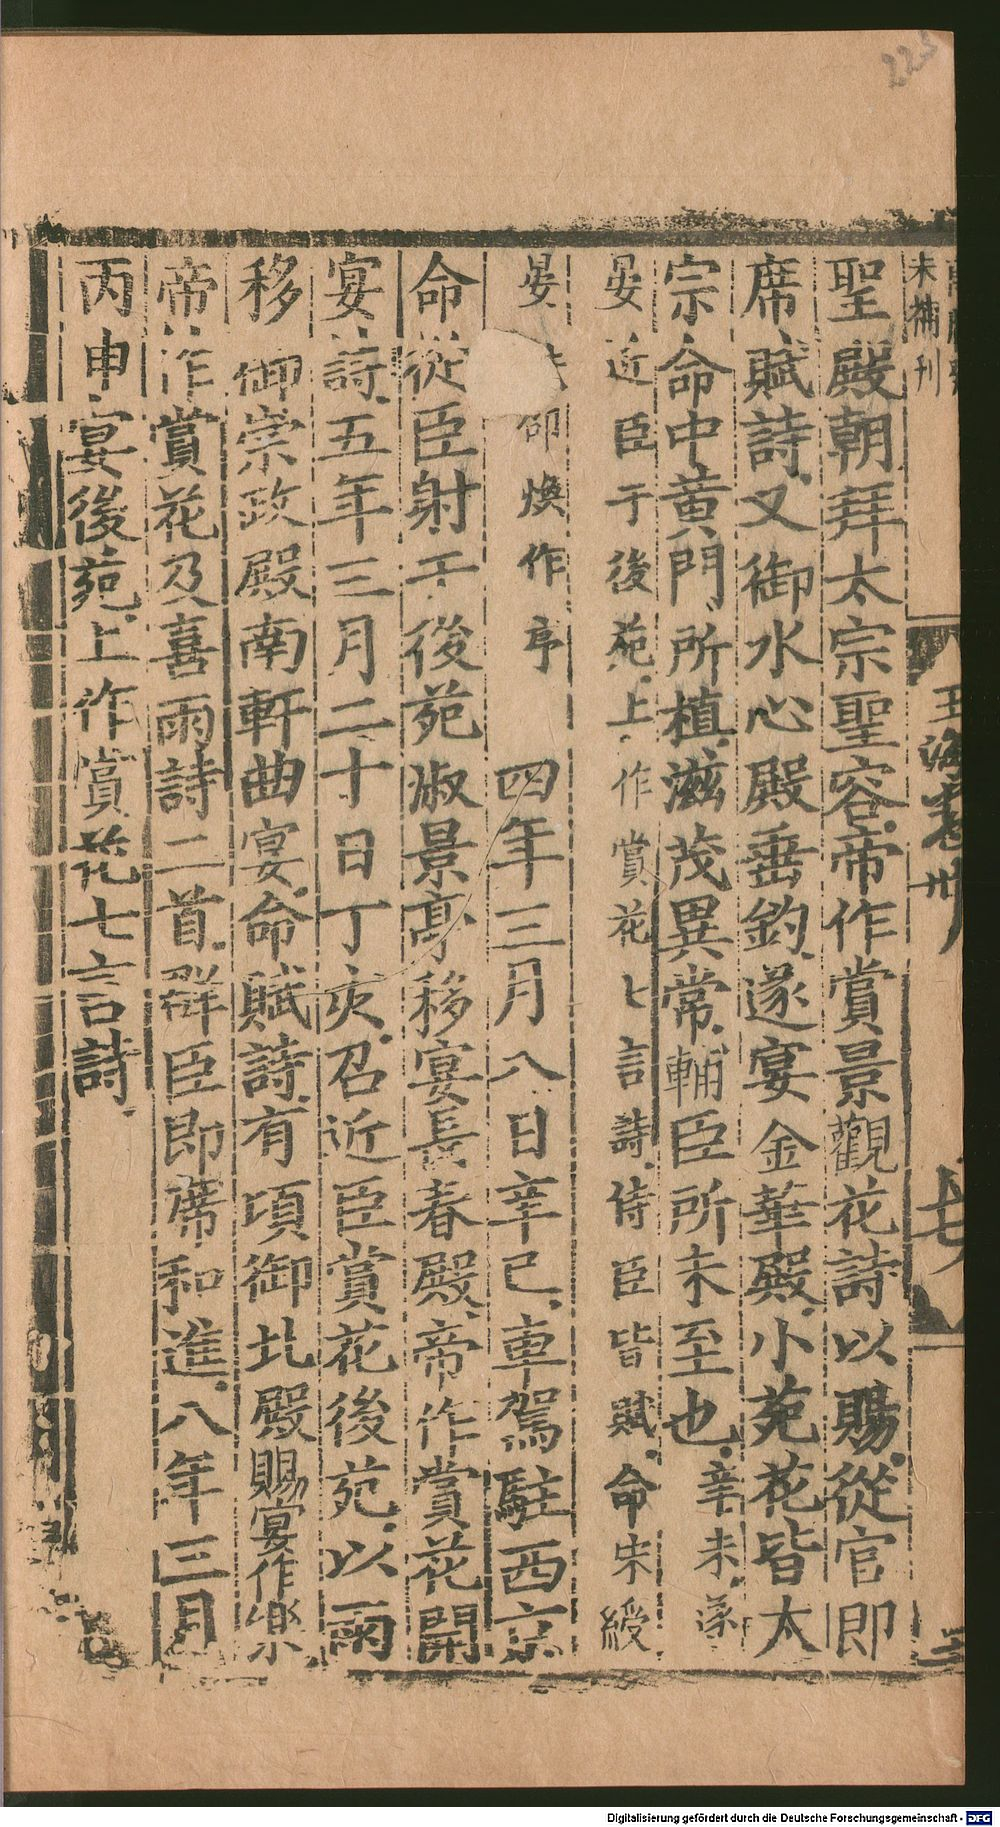 聖殿朝拜太宗聖容帝作賞景觀花詩以賜從官即
席賦詩又御水心殿垂釣遂宴金華殿小苑花皆太
宗命中黃門所植滋茂異常輔臣所未至也辛未遂
晏近臣于後苑上作賞花七言詩侍臣皆賦命宋綬
晏 卻煥作序 四年三月八日辛巳車駕駐西京
命從臣射于後苑淑景亭移宴長春殿帝作賞花開
宴詩五年三月二十日丁亥召近臣賞花後苑以雨
移御崇政殿南軒曲宴命賦詩有頃御北殿賜宴作樂
帝作賞花及喜雨詩二首群臣即席和進八年三月
丙申宴後苑上作賞花七言詩
未補刊
玉海卷卅
225
Digitalisierung gefördert durch die Deutsche Forschungsgemeinschaft - DFG